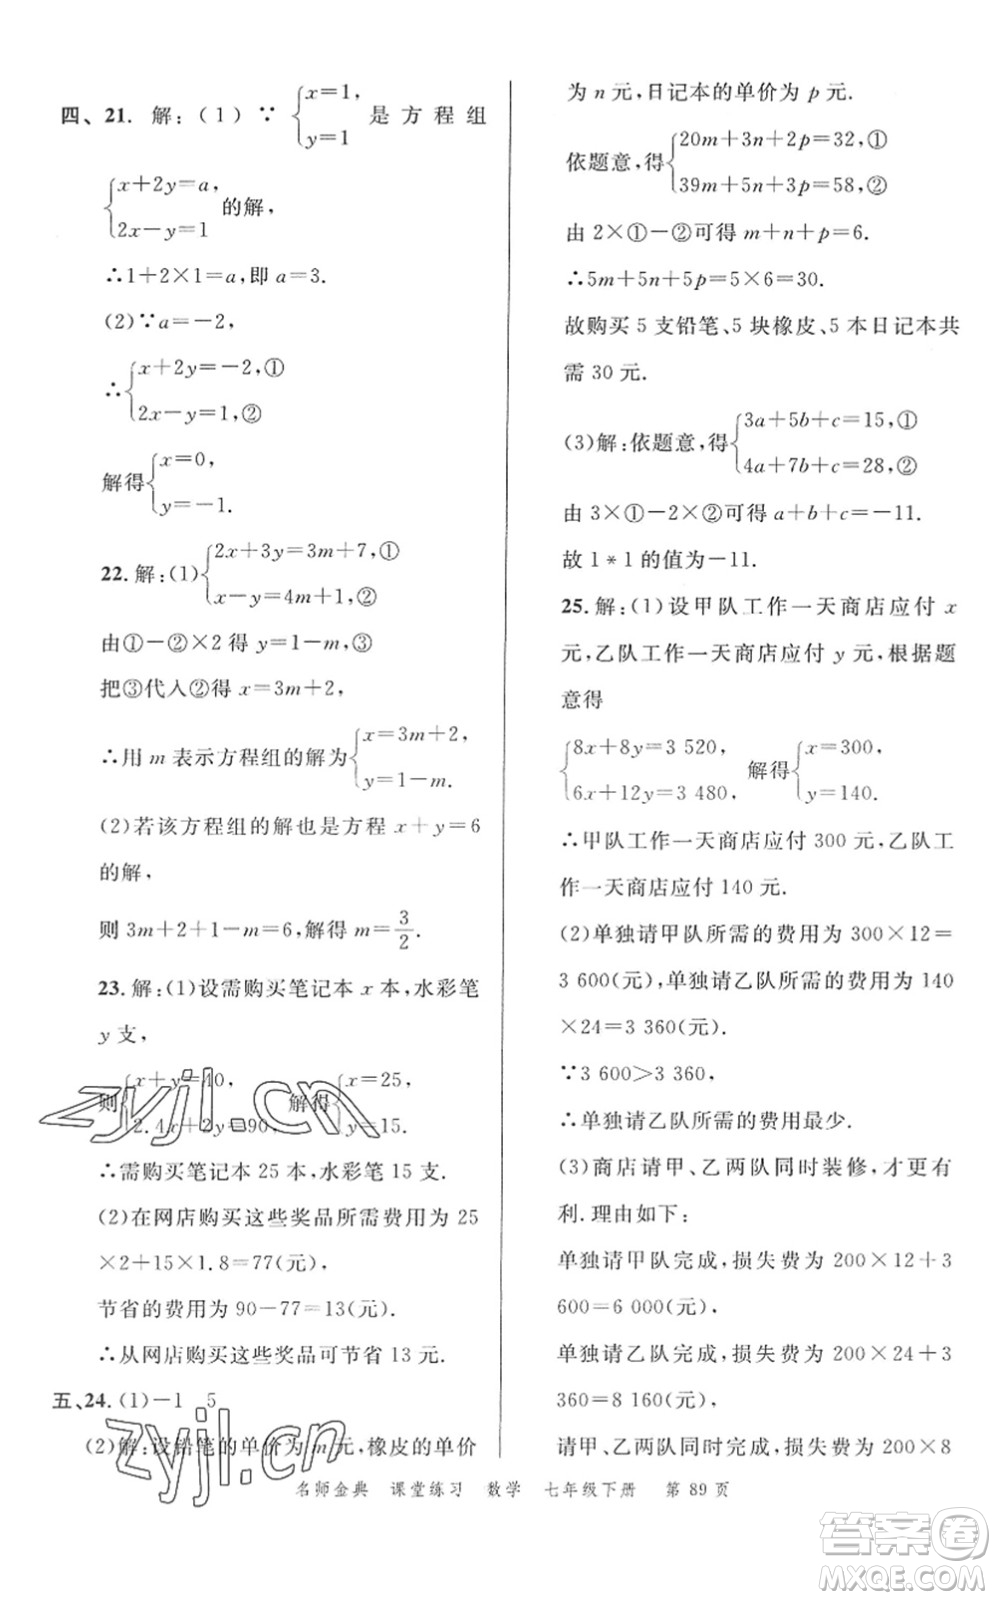 四、21. 解:(1)∵{x=1, y=1 是方程组
{x+2y=a, 2x-y=1 的解,
∴1+2×1=a,即 a=3.
(2)∵a=-2,
∴{x+2y=-2,① 2x-y=1,②
解得{x=0, y=-1.
22. 解:(1){2x+3y=3m+7,① x-y=4m+1,②
由①-②×2 得 y=1-m,③
把③代入②得 x=3m+2,
∴用 m 表示方程组的解为{x=3m+2, y=1-m.
(2)若该方程组的解也是方程 x+y=6
的解,
则 3m+2+1-m=6,解得 m=3/2.
23. 解:(1)设需购买笔记本 x 本,水彩笔
y 支,
则{x+y=40, 2.4x+2y=90, 解得{x=25, y=15.
∴需购买笔记本 25 本,水彩笔 15 支.
(2)在网店购买这些奖品所需费用为 25
×2+15×1.8=77(元),
节省的费用为 90-77=13(元).
∴从网店购买这些奖品可节省 13 元.
五、24. (1)-1 5
(2)解:设铅笔的单价为 m 元,橡皮的单价
为 n 元,日记本的单价为 p 元.
依题意,得{20m+3n+2p=32,① 39m+5n+3p=58,②
由 2×①-②可得 m+n+p=6.
∴5m+5n+5p=5×6=30.
故购买 5 支铅笔、5 块橡皮、5 本日记本共
需 30 元.
(3)解:依题意,得{3a+5b+c=15,① 4a+7b+c=28,②
由 3×①-2×②可得 a+b+c=-11.
故 1*1 的值为-11.
25. 解:(1)设甲队工作一天商店应付 x
元,乙队工作一天商店应付 y 元,根据题
意得
{8x+8y=3 520, 6x+12y=3 480, 解得{x=300, y=140.
∴甲队工作一天商店应付 300 元,乙队工
作一天商店应付 140 元.
(2)单独请甲队所需的费用为 300×12=
3 600(元),单独请乙队所需的费用为 140
×24=3 360(元).
∵3 600>3 360,
∴单独请乙队所需的费用最少.
(3)商店请甲、乙两队同时装修,才更有
利.理由如下:
单独请甲队完成,损失费为 200×12+3
600=6 000(元),
单独请乙队完成,损失费为 200×24+3
360=8 160(元),
请甲、乙两队同时完成,损失费为 200×8
名师金典 课堂练习 数学 七年级下册 第 89 页
zyjl.cn
zyjl.cn
答案卷
MXQE.COM